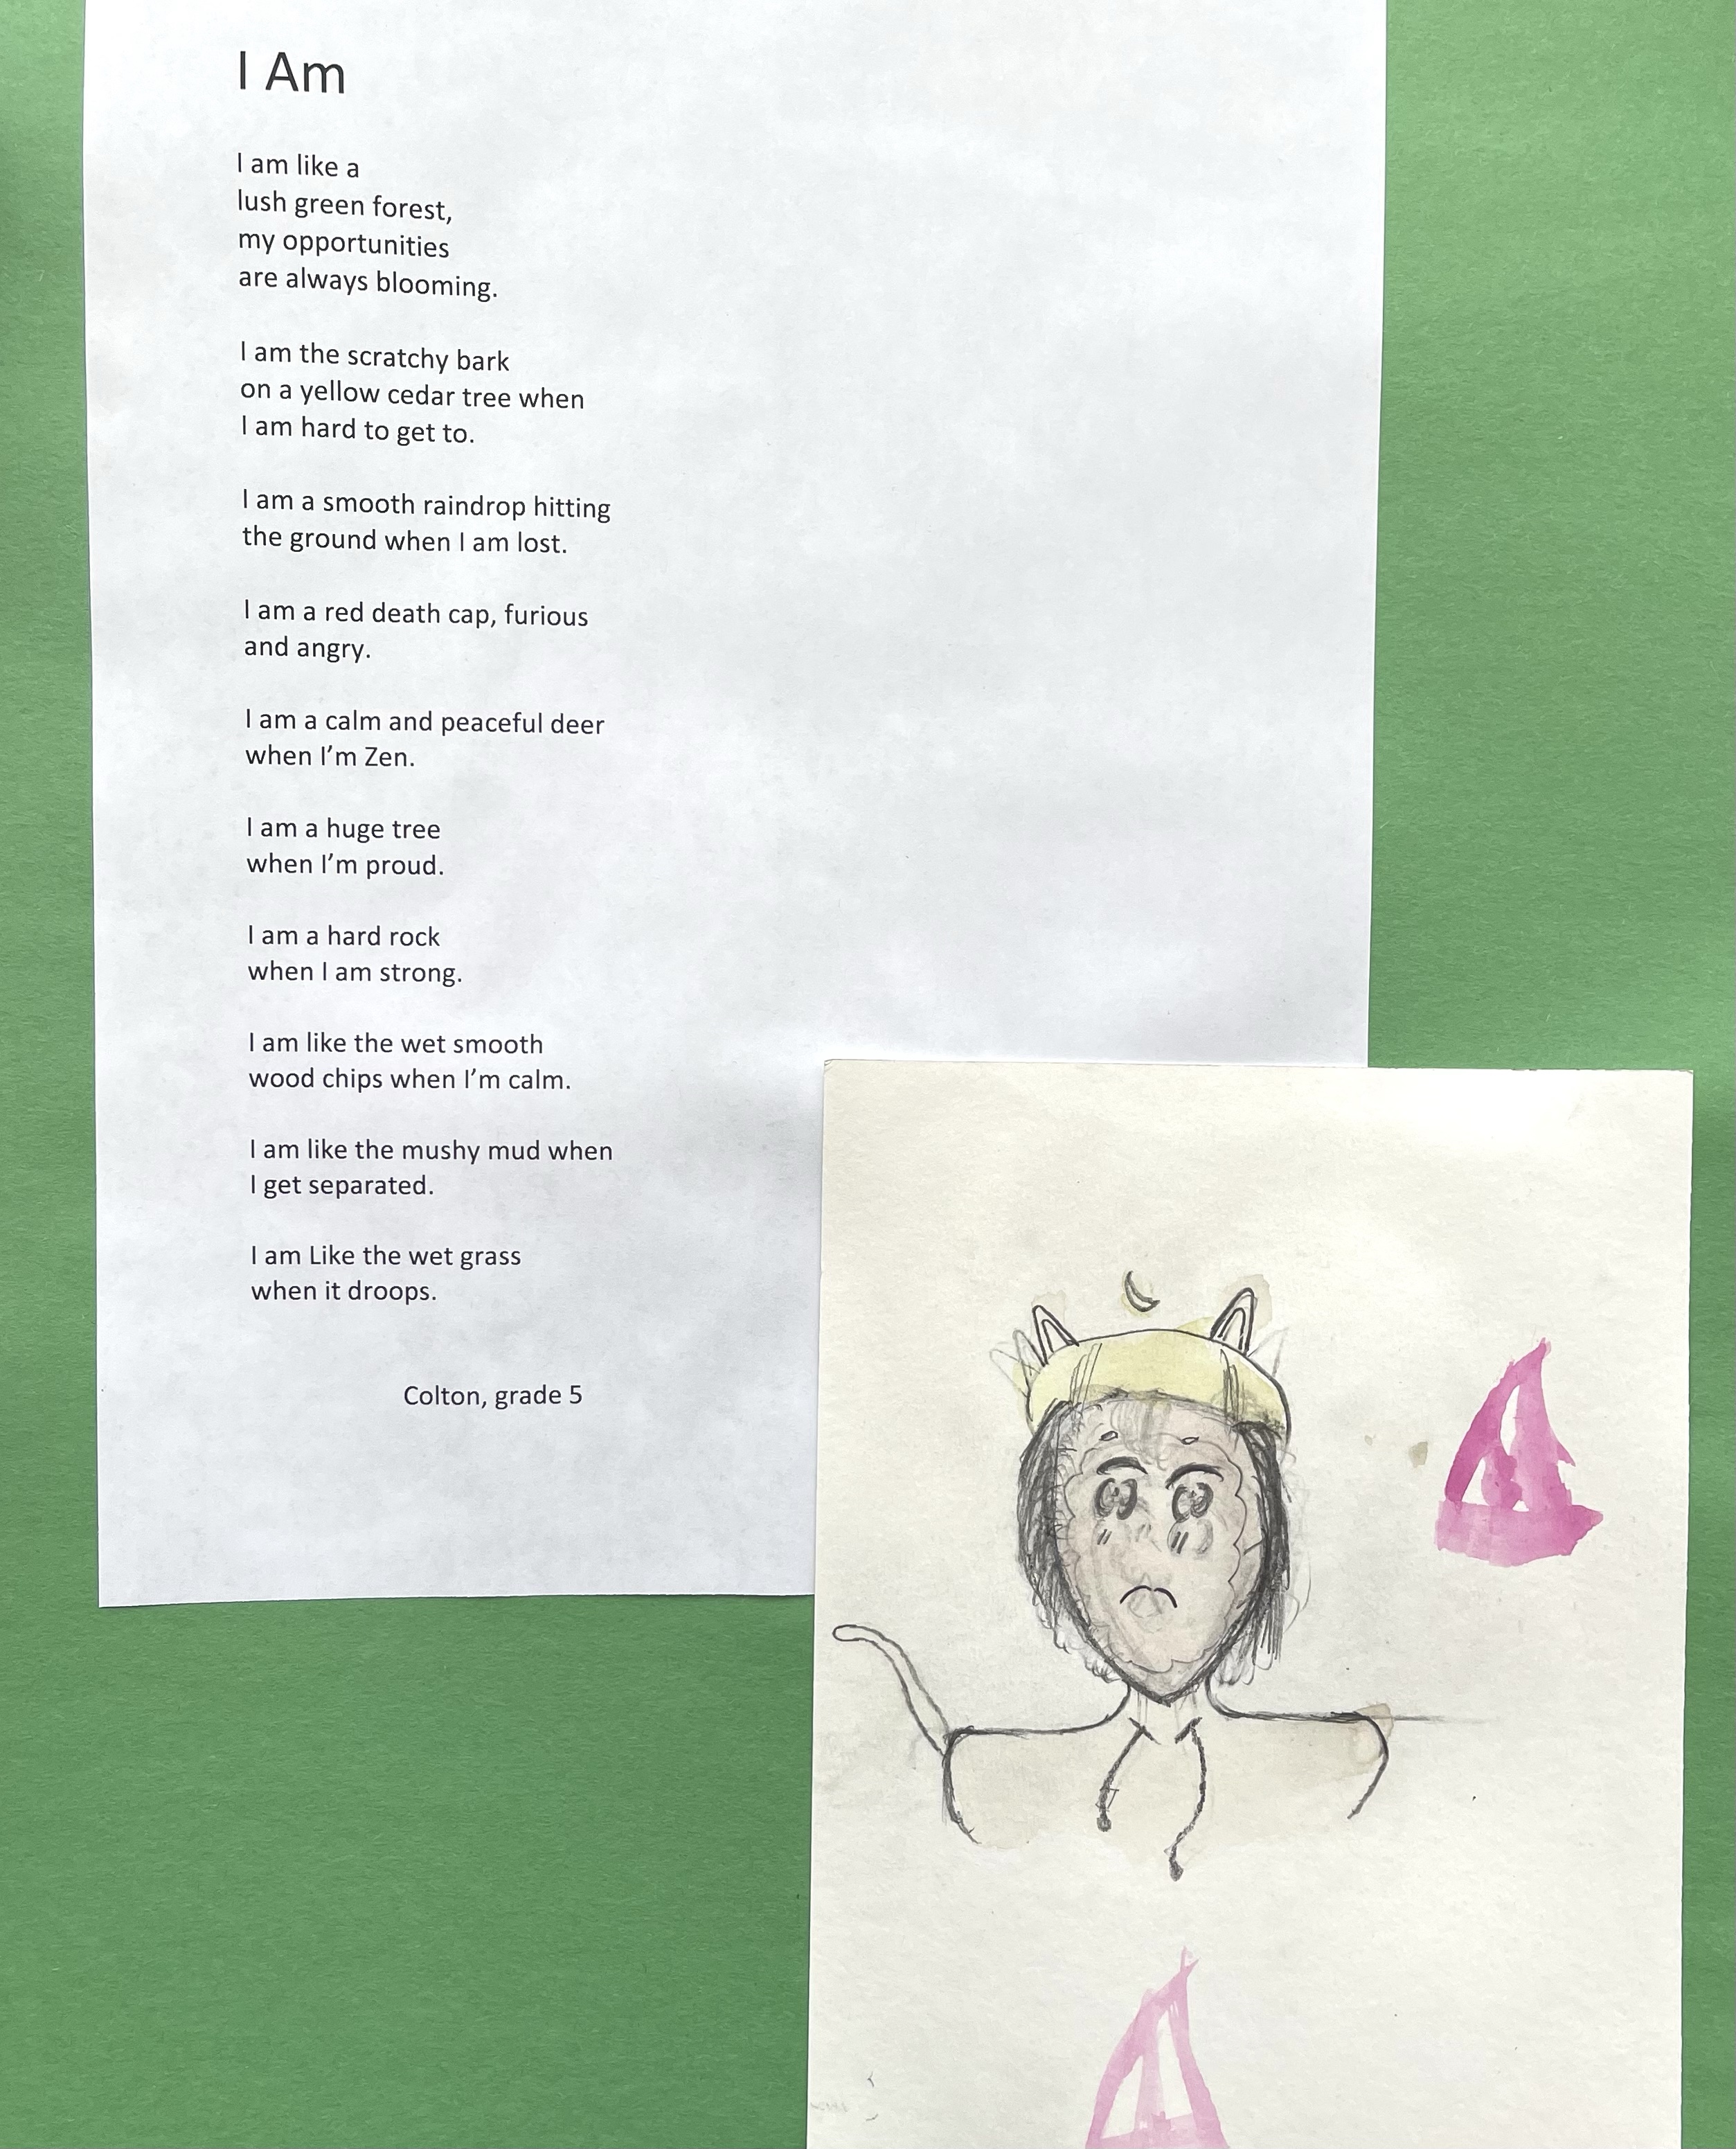 I Am
I am like a
lush green forest,
my opportunities
are always blooming.
I am the scratchy bark
on a yellow cedar tree when
I am hard to get to.
I am a smooth raindrop hitting
the ground when I am lost.
I am a red death cap, furious
and angry.
I am a calm and peaceful deer
when I’m Zen.
I am a huge tree
when I’m proud.
I am a hard rock
when I am strong.
I am like the wet smooth
wood chips when I’m calm.
I am like the mushy mud when
I get separated.
I am Like the wet grass
when it droops.
Colton, grade 5